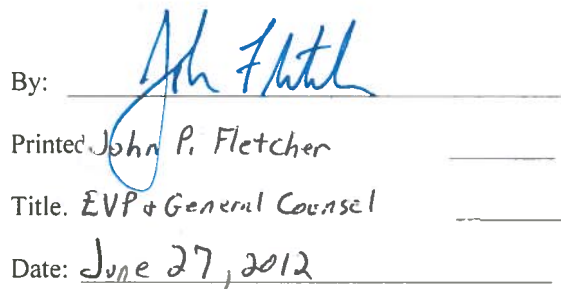 By: John Fletcher
Printed John P. Fletcher
Title. EVP & General Counsel
Date: June 27, 2012